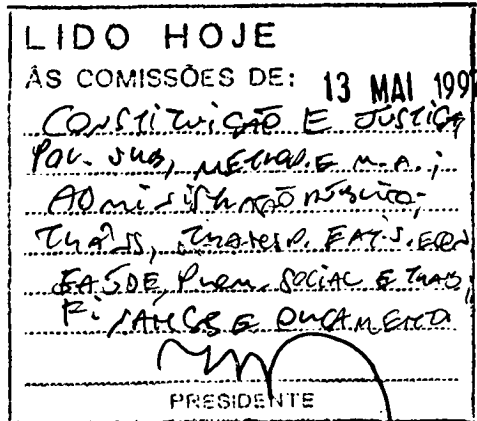 LIDO HOJE
ÀS COMISSÕES DE: 13 MAI 199
CONSTITUIÇÃO E JUSTIÇA
POL. URB, METROP. E M.A.;
ADMINISTRAÇÃO PÚBLICA;
TRÂNS, TRANSP.
SAÚDE, PROM. SOCIAL E TRAB;
FINANÇAS E ORÇAMENTO
PRESIDENTE